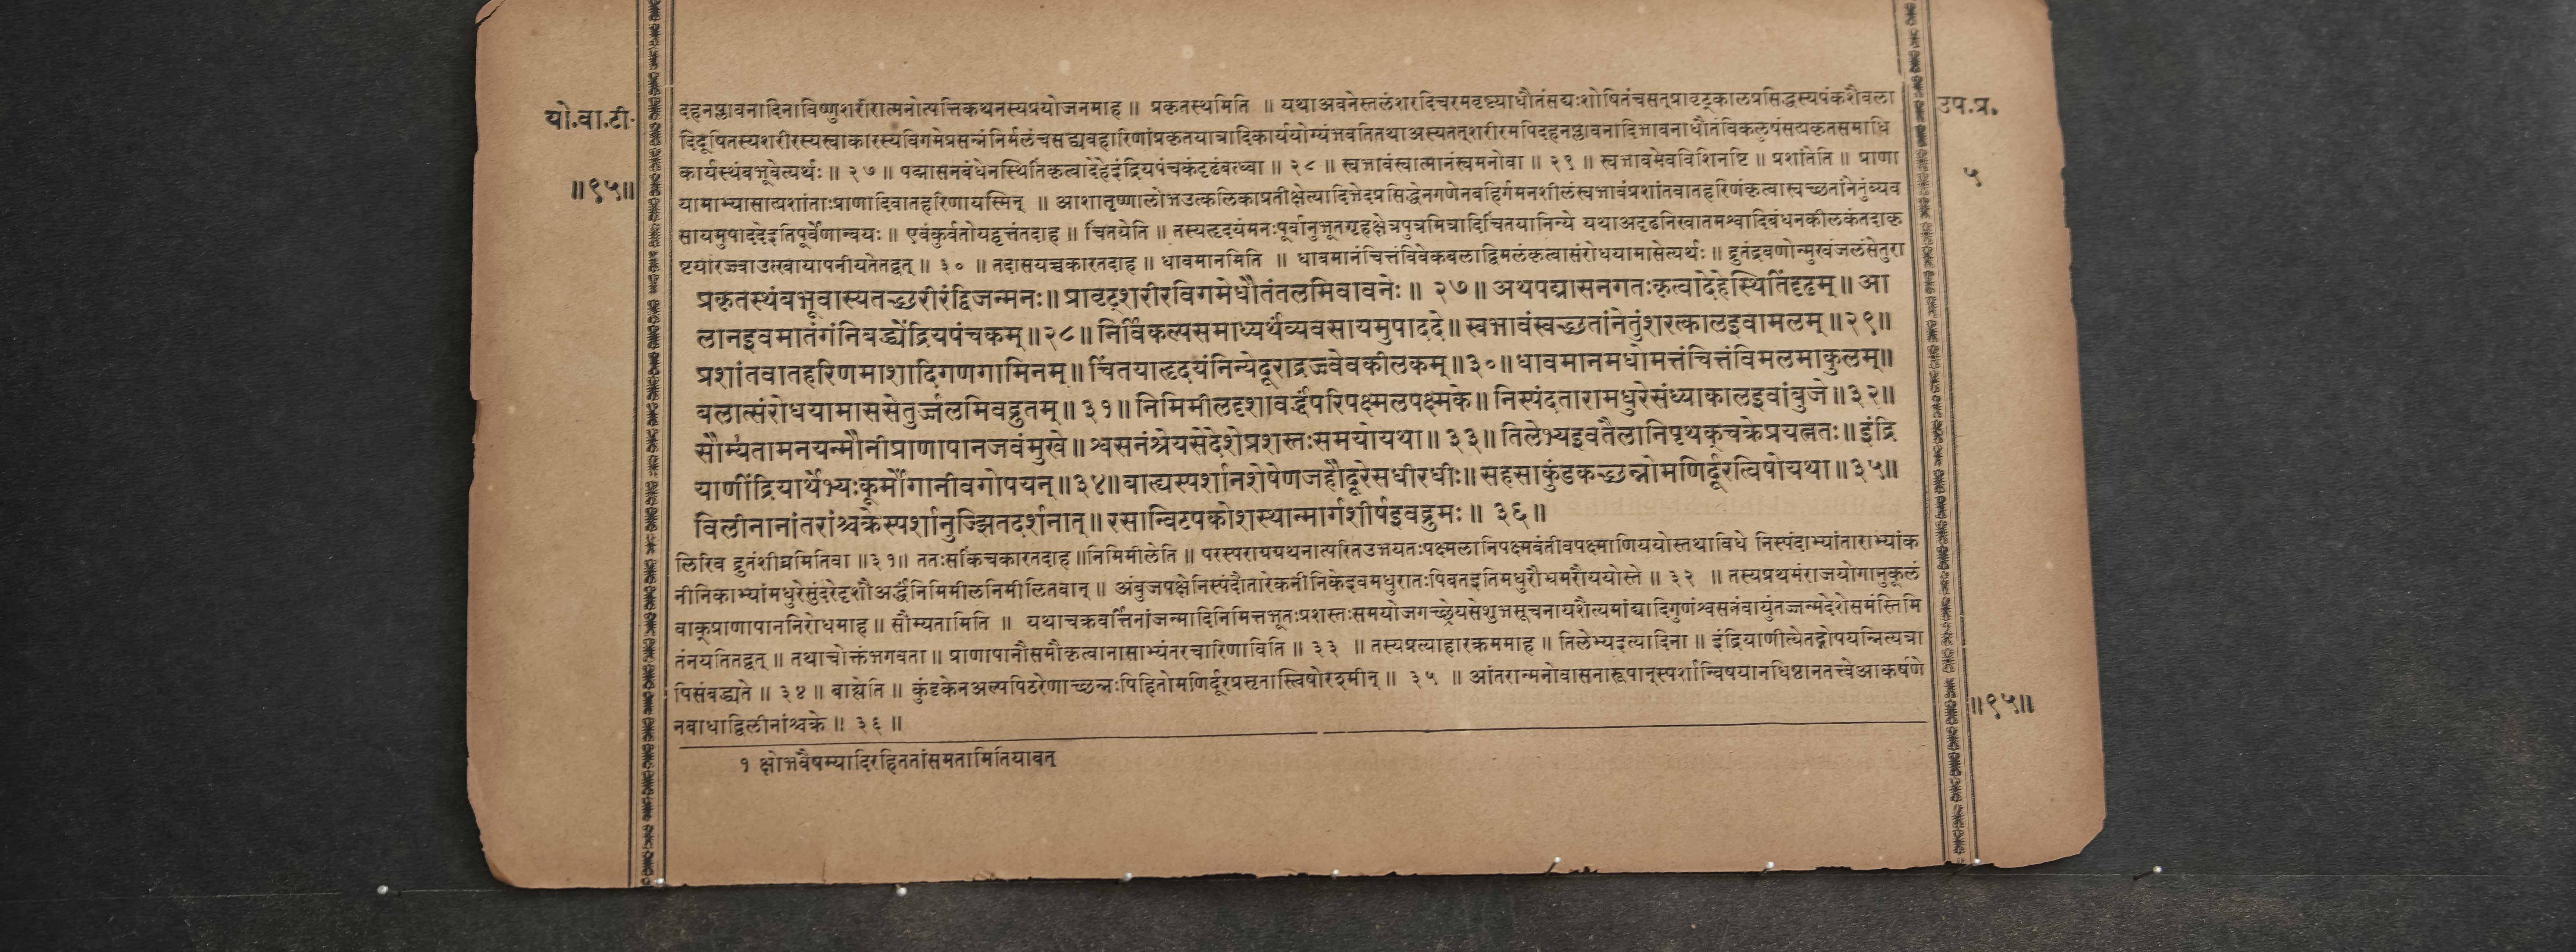 यो.वा.टी.
॥९५॥
उप.प्र.
५
दहनप्लावनादिनाविष्णुशरीरात्मनोत्पत्तिकथनस्यप्रयोजनमाह ॥ प्रकृतस्थमिति ॥ यथाअवनेस्तलंशरदिचरमवृष्ट्याधौतंसद्यःशोषितंचसत्प्रावृट्कालप्रसिद्धस्यपंकशैवला
दिदूषितस्यशरीरस्यस्वाकारस्यविगमेप्रसन्नंनिर्मलंचसद्व्यवहारिणांप्रकृतयात्रादिकार्ययोग्यंभवतितथाअस्यतत्शरीरमपिदहनप्लावनादिभावनाधौतंविकलुषंसत्प्रकृतसमाधि
कार्यस्थंबभूवेत्यर्थः ॥ २७ ॥ पद्मासनबंधेनस्थितिंकृत्वादेहेइंद्रियपंचकंदृढंबध्वा ॥ २८ ॥ स्वभावंस्वात्मानंस्वमनोवा ॥ २९ ॥ स्वभावमेवविशिनष्टि ॥ प्रशांतेति ॥ प्राणा
यामाभ्यासात्प्रशांताःप्राणादिवातहरिणायस्मिन् ॥ आशातृष्णालोभउत्कलिकाप्रतीक्षेत्यादिभेदप्रसिद्धेनगणेनबहिर्गमनशीलंस्वभावंप्रशांतवातहरिणंकृत्वास्वच्छतांनेतुंव्यव
सायमुपाददेइतिपूर्वेणान्वयः ॥ एवंकुर्वतोयद्वृत्तंतदाह ॥ चिंतयेति ॥ तस्यहृदयंमनःपूर्वानुभूतगृहक्षेत्रपुत्रमित्रादिचिंतयानिन्ये यथाअदृढनिखातमश्वादिबंधनकीलकंतदाकृ
ष्टयारज्वाउत्खायापनीयतेतद्वत् ॥ ३० ॥ तदासयच्चकारतदाह ॥ धावमानमिति ॥ धावमानंचित्तंविवेकबलाद्विमलंकृत्वासंरोधयामासेत्यर्थः ॥ द्रुतंद्रवणोन्मुखंजलंसेतुरा
प्रकृतस्थंबभूवास्यतच्छरीरंद्विजन्मनः॥ प्रावृट्शरीरविगमेधौतंतलमिवावनेः॥ २७॥ अथपद्मासनगतःकृत्वादेहेस्थितिंदृढम्॥ आ
लानइवमातंगंनिबद्ध्येंद्रियपंचकम्॥२८॥ निर्विकल्पसमाध्यर्थंव्यवसायमुपाददे॥ स्वभावंस्वच्छतांनेतुंशरत्कालइवामलम्॥२९॥
प्रशांतवातहरिणमाशादिगणगामिनम्॥ चिंतयाहृदयंनिन्येदूराद्रज्ज्वेवकीलकम्॥३०॥धावमानमधोमत्तंचित्तंविमलमाकुलम्॥
बलात्संरोधयामाससेतुर्जलमिवद्रुतम्॥ ३१॥ निमिमीलदृशावर्द्धंपरिपक्ष्मलपक्ष्मके॥ निस्पंदतारामधुरेसंध्याकालइवांबुजे॥३२॥
सौम्यतामनयन्मौनीप्राणापानजवंमुखे॥ श्वसनंश्रेयसेदेशेप्रशस्तःसमयोयथा॥ ३३॥ तिलेभ्यइवतैलानिपृथक्चक्रेप्रयत्नतः॥ इंद्रि
याणींद्रियार्थेभ्यःकूर्मोंगानीवगोपयन्॥३४॥बाह्यस्पर्शानशेषेणजहौदूरेसधीरधीः॥सहसाकुंडकच्छन्नोमणिर्दूरत्विषोयथा॥३५॥
विलीनानांतरांश्चक्रेस्पर्शानुज्झितदर्शनात्॥ रसान्विटपकोशस्थान्मार्गशीर्षइवद्रुमः॥ ३६॥
लिरिव द्रुतंशीघ्रमितिवा ॥३१॥ ततःसकिंचकारतदाह ॥निमिमीलेति ॥ परस्परायग्रथनात्परितउभयतःपक्ष्मलानिपक्ष्मवंतीवपक्ष्माणिययोस्तथाविधे निस्पंदाभ्यांताराभ्यांक
नीनिकाभ्यांमधुरेसुंदरेदृशौअर्द्धंनिमिमीलनिमीलितवान् ॥ अंबुजपक्षेनिस्पंदौतारेकनीनिकेइवमधुरातःपिबतइतिमधुरौभ्रमरौययोस्ते ॥ ३२ ॥ तस्यप्रथमंराजयोगानुकूलं
वाक्प्राणापाननिरोधमाह ॥ सौम्यतामिति ॥ यथाचक्रवर्त्तिनांजन्मादिनिमित्तभूतःप्रशस्तःसमयोजगच्छ्रेयसेशुभसूचनायशैत्यमांद्यादिगुणंश्वसनंवायुंतज्जन्मदेशेसमंस्तिमि
तंनयतितद्वत् ॥ तथाचोक्तंभगवता ॥ प्राणापानौसमौकृत्वानासाभ्यंतरचारिणाविति ॥ ३३ ॥ तस्यप्रत्याहारक्रममाह ॥ तिलेभ्यइत्यादिना ॥ इंद्रियाणीत्येतद्गोपयन्नित्यत्रा
पिसंबद्ध्यते ॥ ३४ ॥ बाह्येति ॥ कुंडकेनअल्पपिठरेणाच्छन्नःपिहितोमणिर्दूरप्रसृतास्त्विषोरश्मीन् ॥ ३५ ॥ आंतरान्मनोवासनारूपान्स्पर्शान्विषयानधिष्ठानतत्त्वेआकर्षणे
नबाधाद्विलीनांश्चक्रे ॥ ३६ ॥
१ क्षोभवैषम्यादिरहिततांसमतामितियावत्
॥९५॥